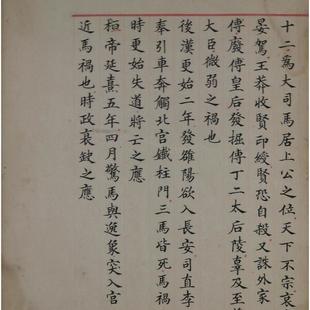 十二爲大司馬居上公之位天下不宗哀
晏駕王莽收賢印綬賢恐自殺又誅外家
傳廢傅皇后發掘傅丁二太后陵辜及至
大臣微弱之禍也
後漢更始二年發雒陽欲入長安司直李
奉引車奔觸北宮鐵柱門三馬皆死馬禍
時更始失道將亡之應
桓帝延熹五年四月驚馬與逸象突入宮
近馬禍也時政衰缺之應